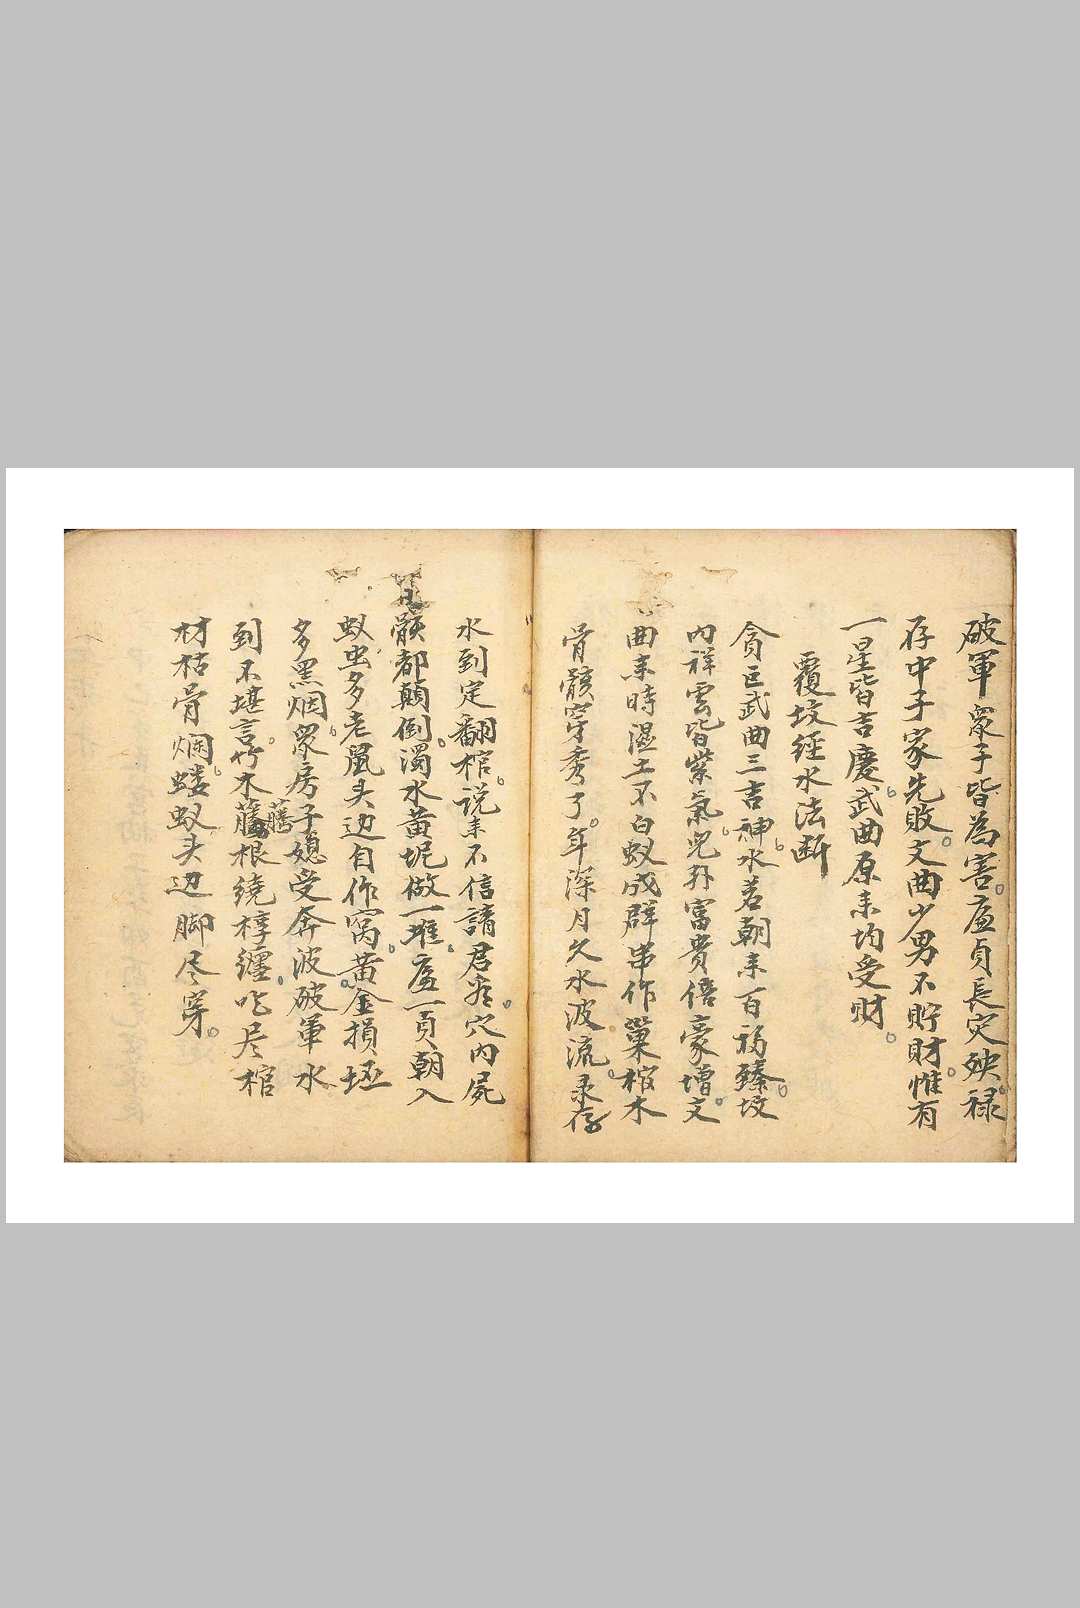 破軍眾子皆為害。廉貞長定殃。禄
存中子家先敗。文曲少男不貯財。惟有
一星皆吉慶。武曲原来均受財。
覆坟經水法断
貪巨武曲三吉神。水若朝来百福臻。坟
内祥雲皆紫氣。兒孙富貴倍豪增。文
曲来時濕土不白蚁成群串作巢棺木
骨骸穿秀了。年深月久水波流。录存
水到定翻棺。说来不信請君看。穴内屍
骸都顛倒。濁水黄坭做一堆。廉貞朝入
蚁虫多老鼠头边自作窝。黄金損坯
多黑烟。眾房子媳受奔波破軍水
到不堪言。竹木藤根繞椁纏。吃尽棺
材枯骨烂。蝼蚁头边脚尽穿。